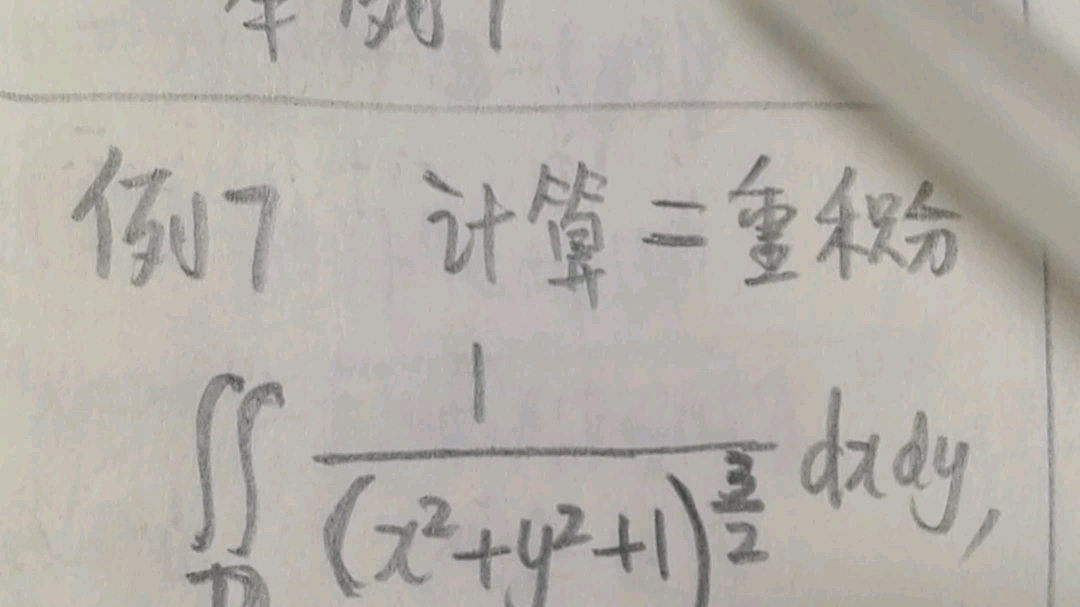 例1
例7 计算二重积分
∬_D 1/(x²+y²+1)^{3/2} dxdy,